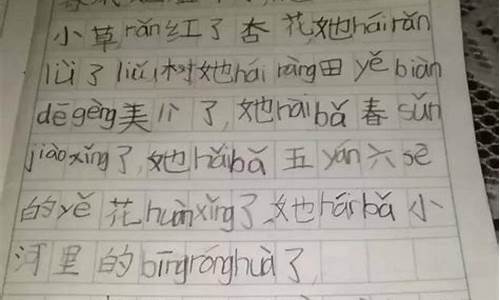 小草rǎn红了杏花,她háirǎn
lǜ了liǔ树她hái ràng田yěbiàn
dēgèng美川了,她háibǎ春sǔn
jiàoxǐng了,她háibǎ五yán六sè
的yě花huànxǐng了她háibǎ小
河里的bīngrónghuà了,